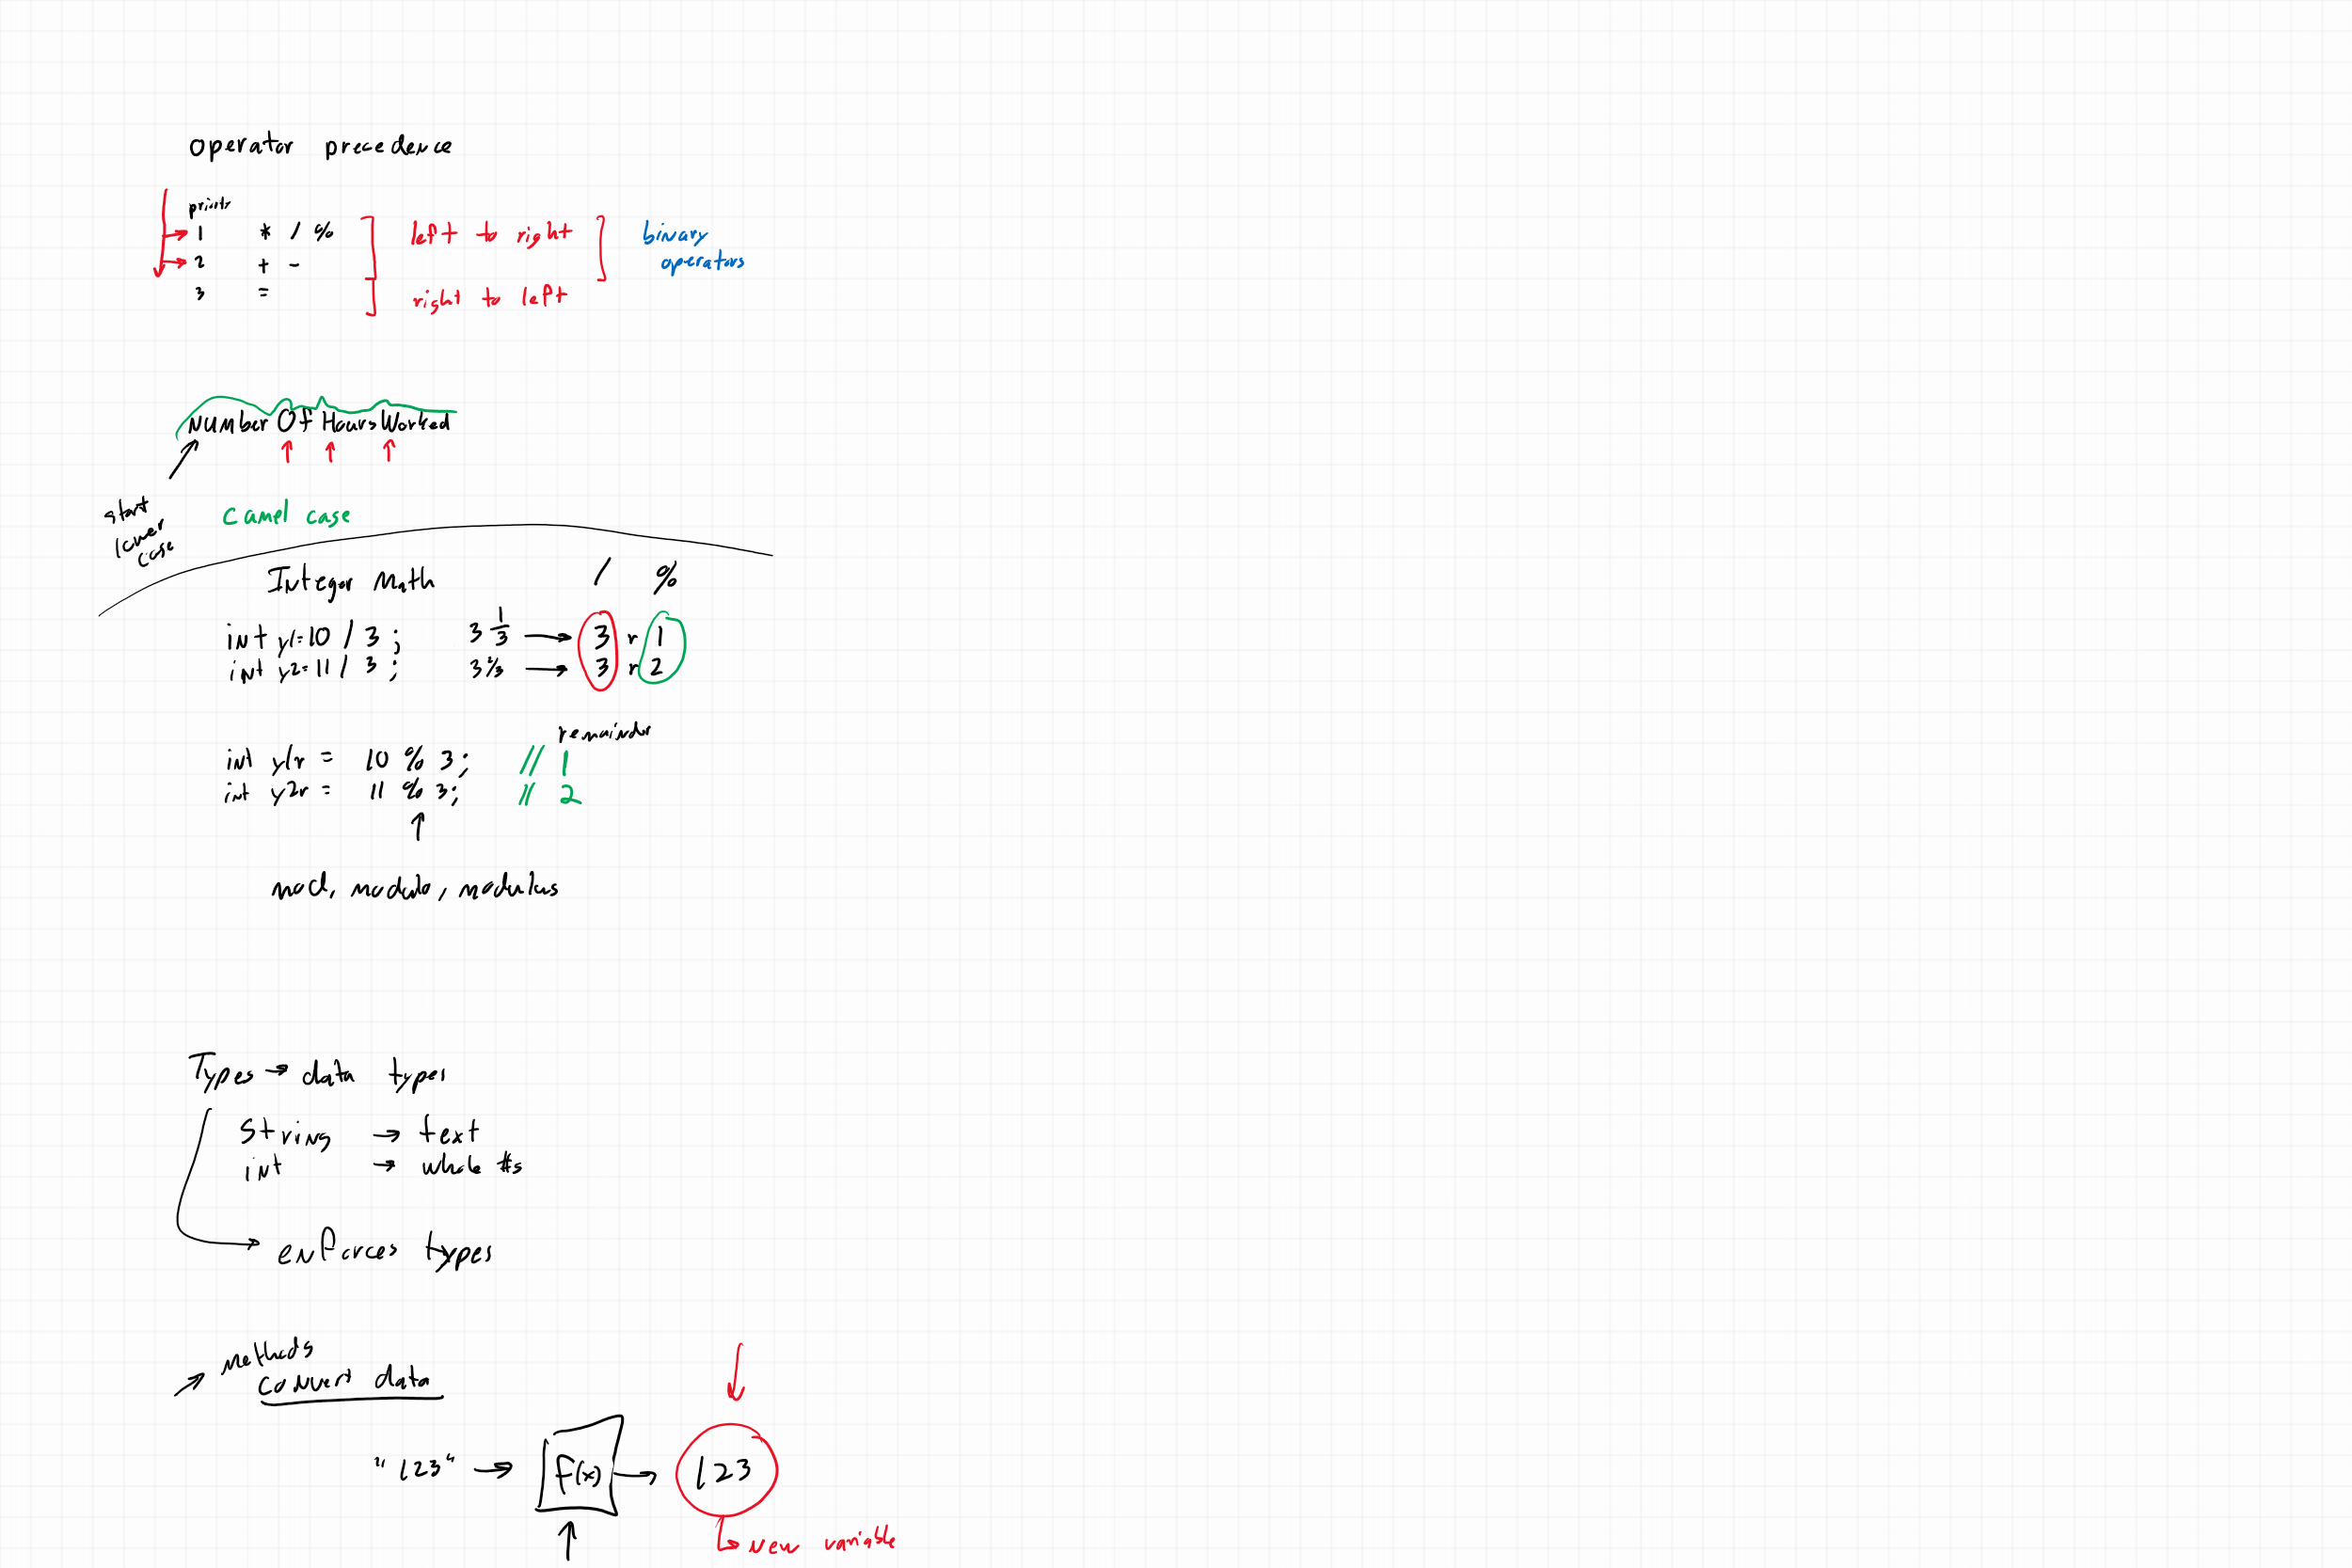 operator precedence
priority
1 * / % left to right binary
2 + - operators
3 = right to left
numberOfHoursWorked
start
lower
case
camel case
Integer Math / %
int y1=10 / 3; 3 1/3 → 3 r 1
int y2=11 / 3; 3 2/3 → 3 r 2
remainder
int y1r = 10 % 3; // 1
int y2r = 11 % 3; // 2
mod, modulo, modulus
Types → data types
string → text
int → whole #s
enforces types
methods
convert data
"123" → f(x) → 123
new variable